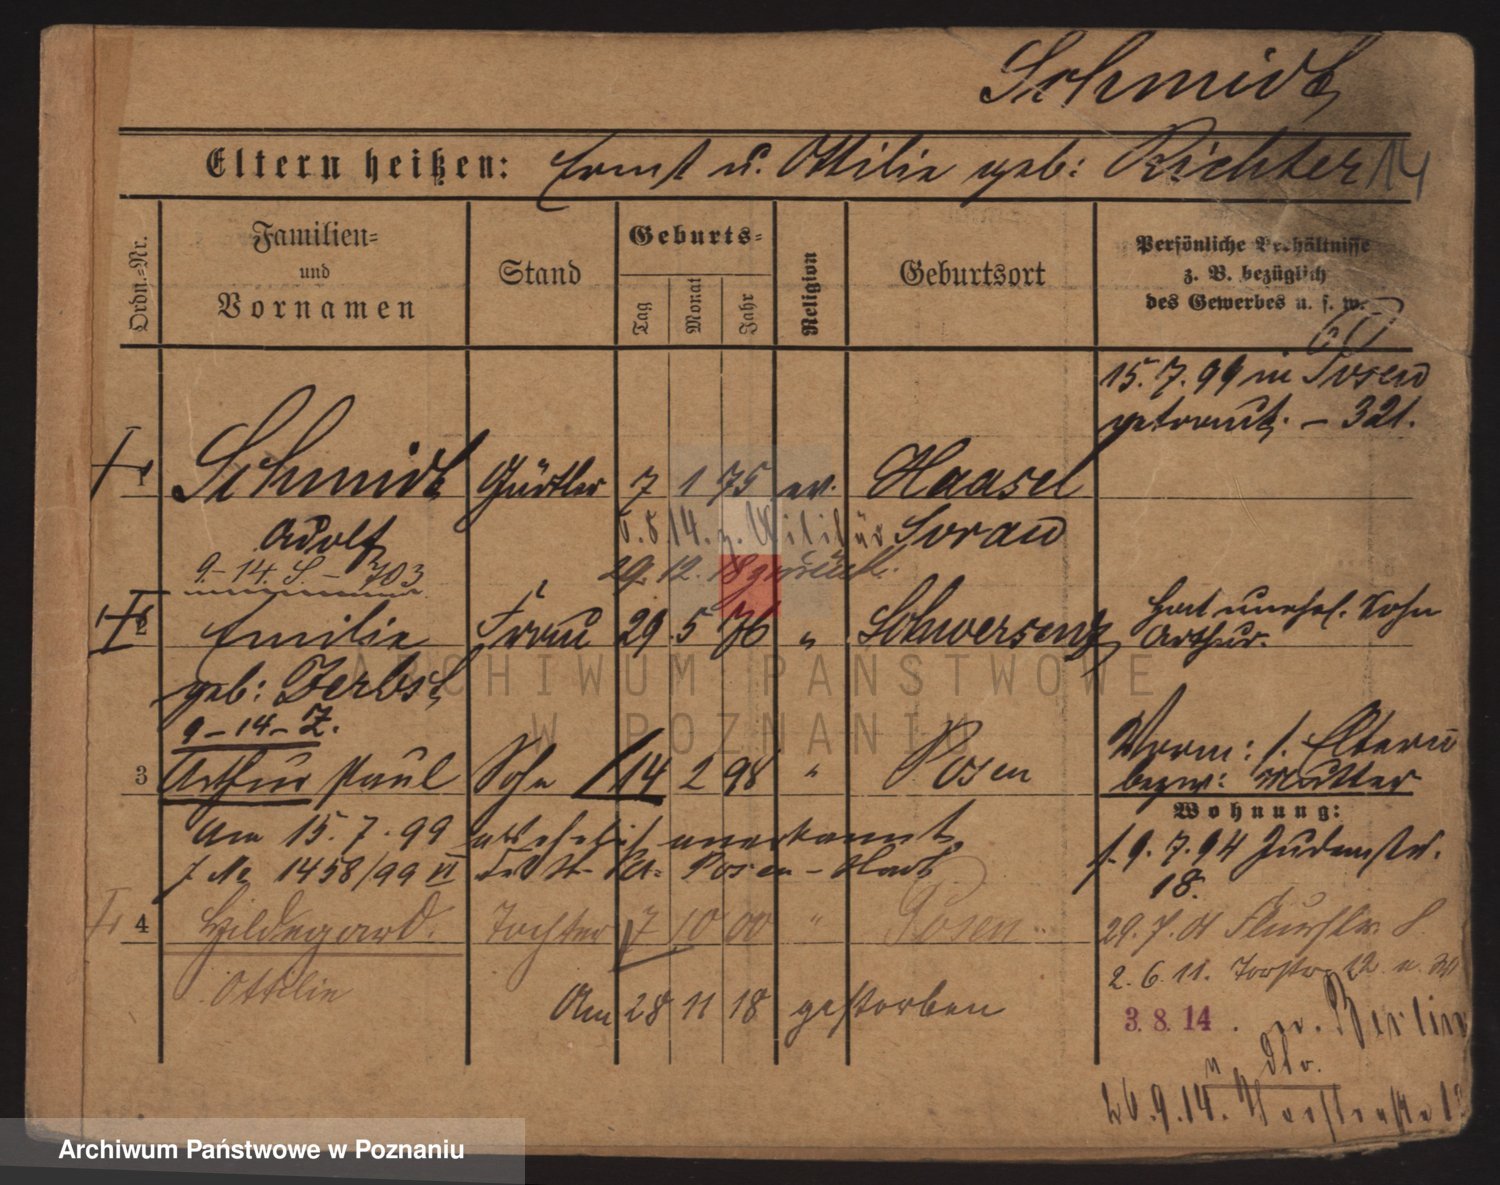 Schmidt
Eltern heißen: Ernst u. Ottilie geb: Richter 14
Ordn.=Nr.
Familien=
und
Vornamen
Stand
Geburts=
Tag
Monat
Jahr
Religion
Geburtsort
Persönliche Verhältnisse
z. B. bezüglich
des Gewerbes u. s. w.
15. 7. 99 in Posen
getraut. - 321.
1 Schmidt Gürtler 7 1 75 ev. Haasel
Adolf 5.8.14. z. Militär Sorau
9.-14. S. - 703 29. 12. 18 zurück.
2 Emilie Frau 29 5 76 " Schwersenz Hat unehel. Sohn
Arthur.
geb: Zerbst
9-14-Z.
3 Arthur Paul Sohn 14 2 98 " Posen Verm: s. Eltern
bezw: Mutter
Wohnung:
Am 15. 7. 99 als ehelich anerkannt.
J. No 1458/99 VI Posen-Stadt
f. 9. 7. 94 Judenstr.
18.
4 Hildegard. Tochter 7 10 00 " Posen
29. 7. 01
Ottilie
2. 6. 11. Torstr. 12
Am 28 11 18 gestorben
3. 8. 14. n. Berlin
26. 9. 14.
ARCHIWUM PAŃSTWOWE
W POZNANIU
Archiwum Państwowe w Poznaniu